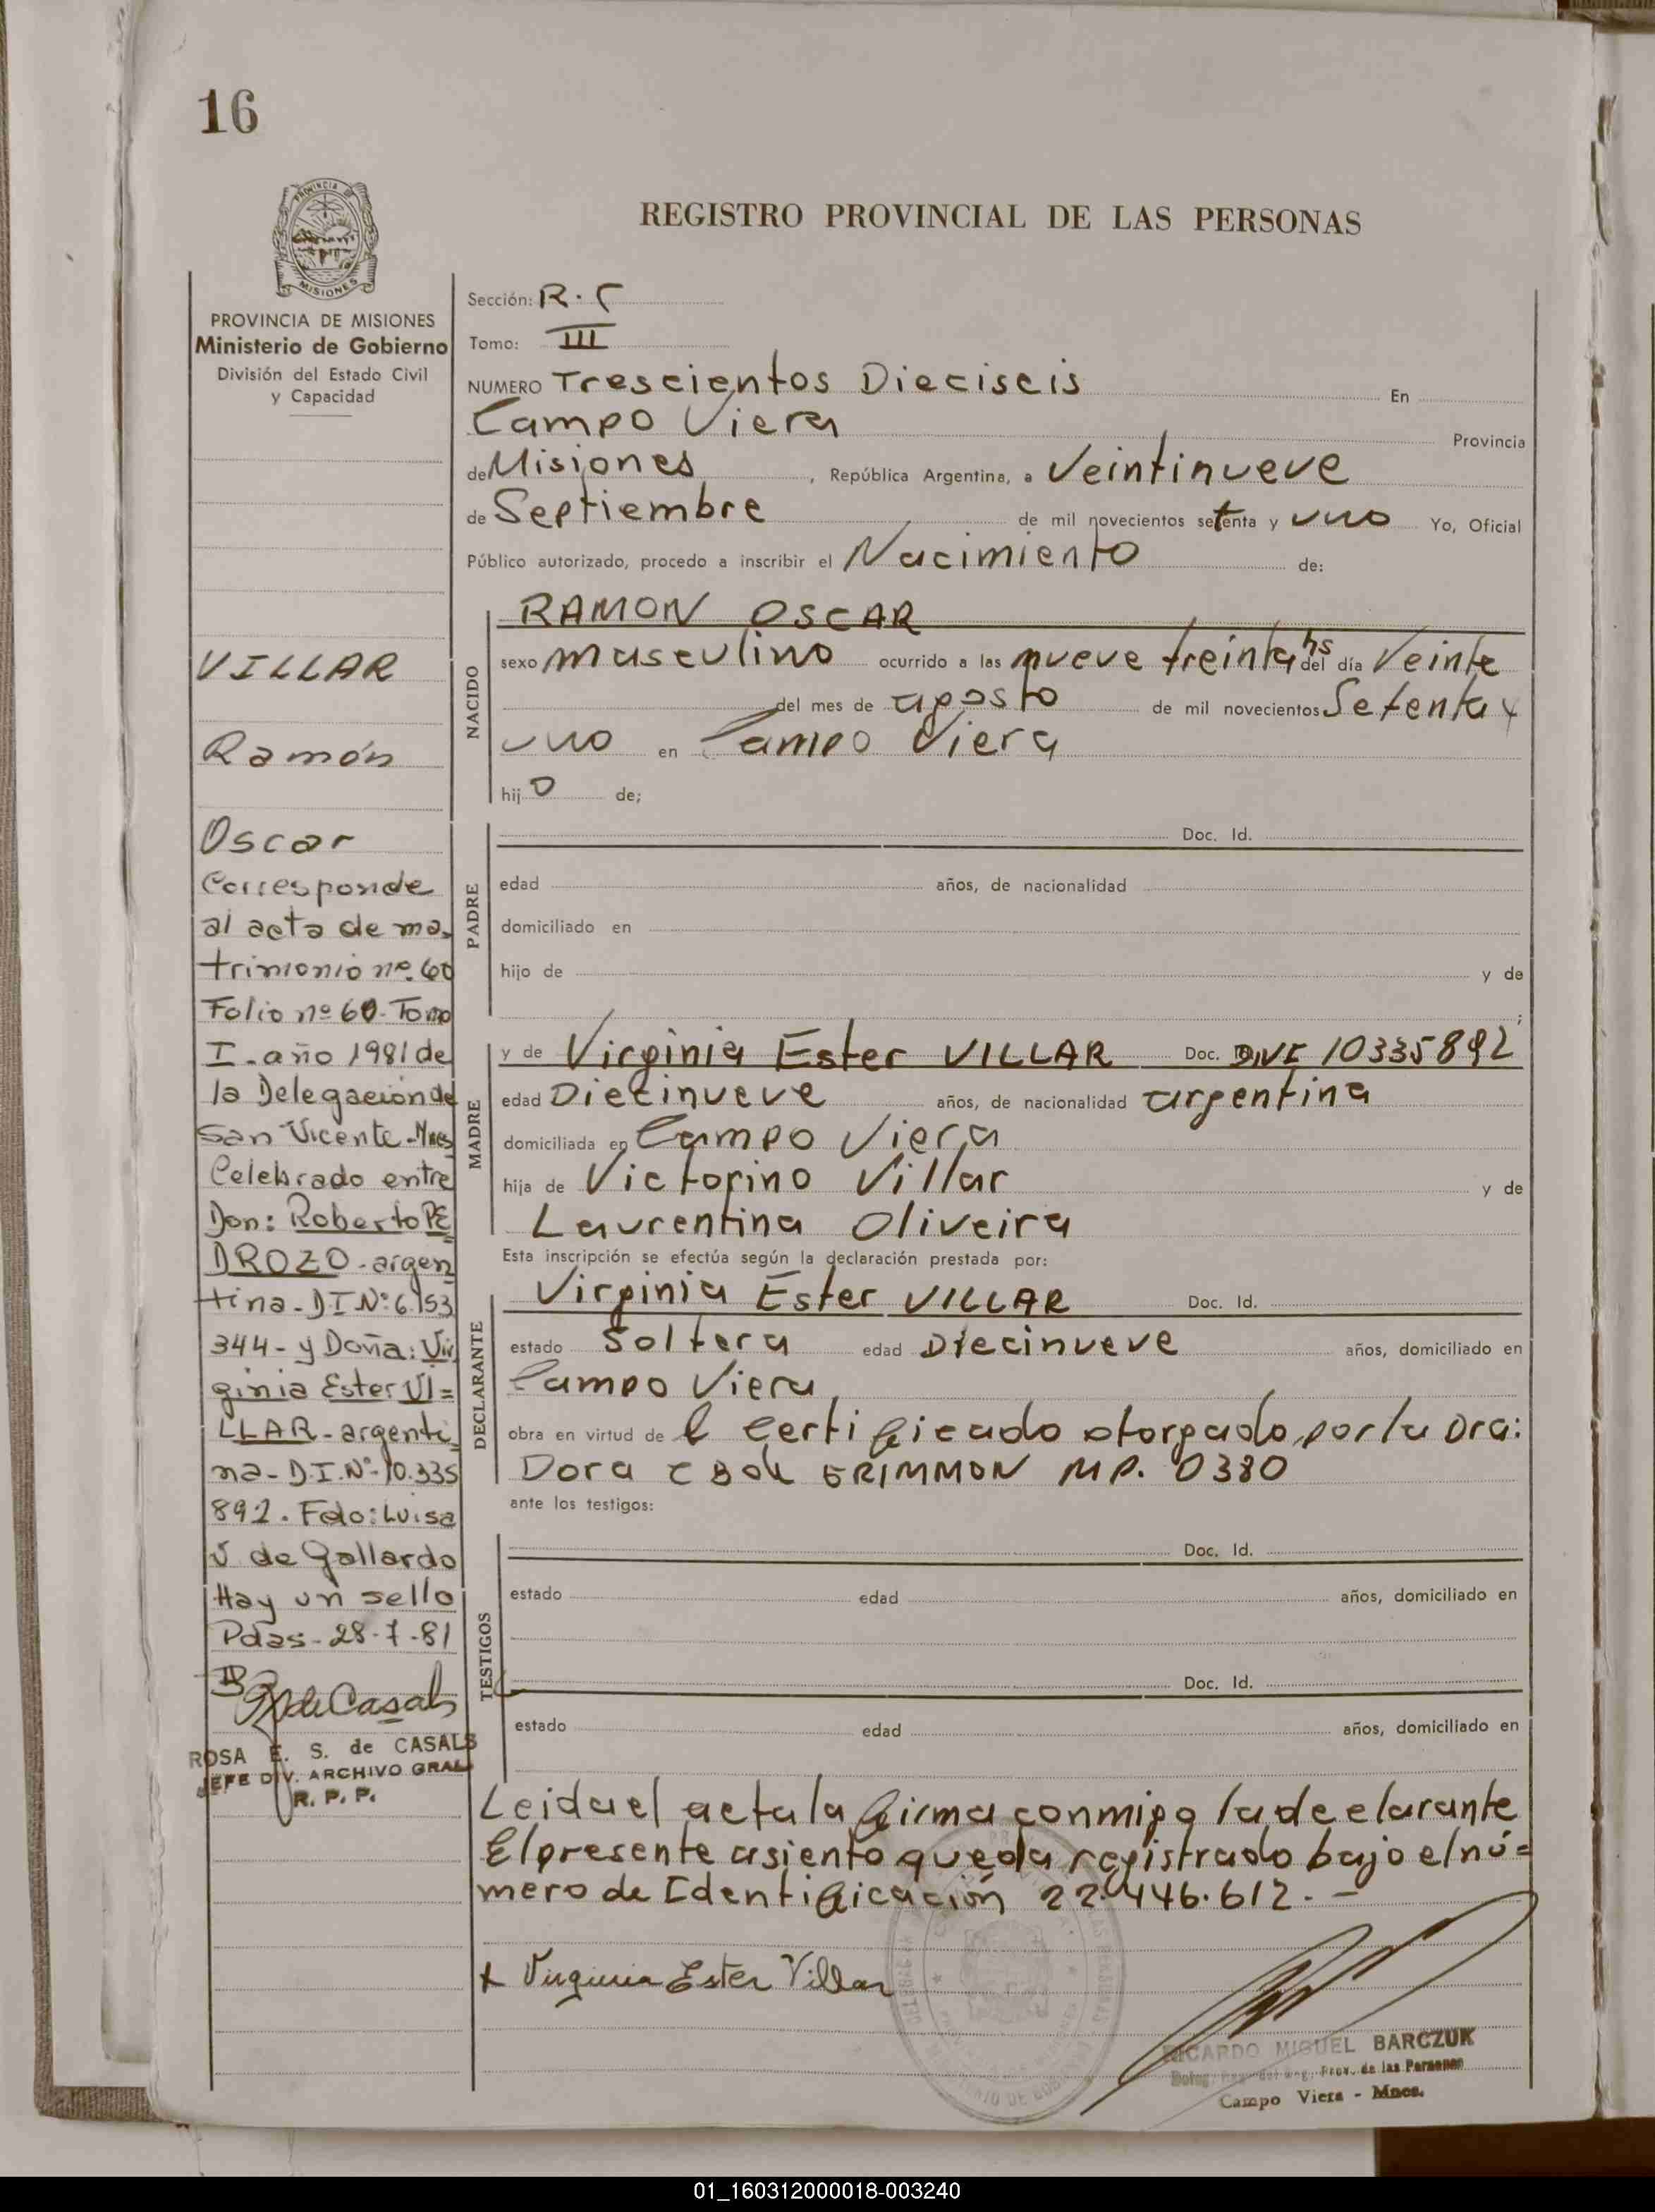 16
REGISTRO PROVINCIAL DE LAS PERSONAS
PROVINCIA DE MISIONES
Ministerio de Gobierno
División del Estado Civil
y Capacidad
VILLAR
Ramón
Oscar
Corresponde
al acta de ma-
trimonio nº. 60
Folio nº 60. Tomo
I - año 1981 de
la Delegación de
San Vicente - Mnes
Celebrado entre
Don: Roberto PE
DROZO - argen
tina - D I Nº: 6.153
344 - y Doña: Vir
ginia Ester VI=
LLAR - argenti
na - D.I. Nº - 10.335
892. Fdo: Luisa
V. de Gallardo
Hay un sello
Pdas - 28-7-81
de Casals
ROSA E. S. de CASALS
JEFE DIV. ARCHIVO GRAL
R. P. P.
Sección: R. C
Tomo: III
NUMERO Trescientos Dieciseis En
Campo Viera Provincia
de Misiones, República Argentina, a Veintinueve
de Septiembre de mil novecientos setenta y uno Yo, Oficial
Público autorizado, procedo a inscribir el Nacimiento de:
NACIDO
RAMON OSCAR
sexo masculino ocurrido a las nueve treinta hs del día Veinte
del mes de agosto de mil novecientos Setenta y
uno en Campo Viera
hijo de;
PADRE
Doc. Id.
edad años, de nacionalidad
domiciliado en
hijo de y de
;
MADRE
y de Virginia Ester VILLAR Doc. DNI 10335892
edad Diecinueve años, de nacionalidad argentina
domiciliada en Campo Viera
hija de Victorino Villar y de
Laurentina Oliveira
Esta inscripción se efectúa según la declaración prestada por:
DECLARANTE
Virginia Ester VILLAR Doc. Id.
estado Soltera edad Diecinueve años, domiciliado en
Campo Viera
obra en virtud de l certificado otorgado por la Dra:
Dora GRIMMON MP. 0380
ante los testigos:
TESTIGOS
Doc. Id.
estado edad años, domiciliado en
Doc. Id.
estado edad años, domiciliado en
Leida el acta la firma conmigo la declarante
El presente asiento queda registrado bajo el nú=
mero de Identificación 22.446.612. -
x Virginia Ester Villar
RICARDO MIGUEL BARCZUK
Prov. de las Personas
Campo Viera - Mnes.
01_160312000018-003240